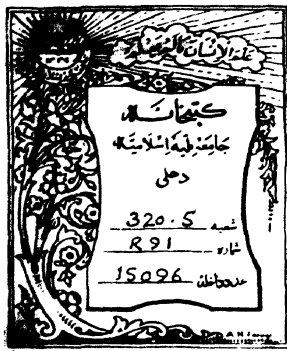 علم الانسان مالم يعلم
كتبخانہ
جامعہ ملیہ اسلامیہ
دهلی
شعبہ 320.5
شمارہ R91
15096